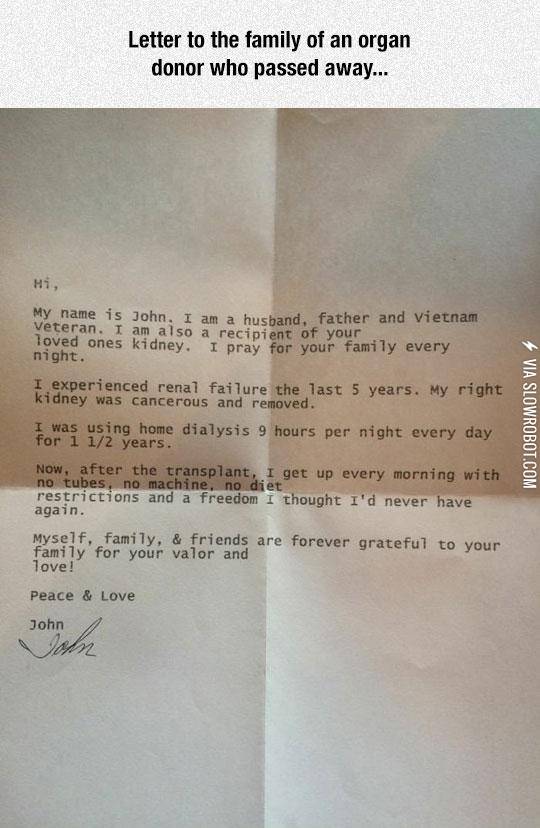 Letter to the family of an organ
donor who passed away...
Hi,
My name is John. I am a husband, father and Vietnam
Veteran. I am also a recipient of your
loved ones kidney. I pray for your family every
night.
I experienced renal failure the last 5 years. My right
kidney was cancerous and removed.
I was using home dialysis 9 hours per night every day
for 1 1/2 years.
Now, after the transplant, I get up every morning with
no tubes, no machine, no diet
restrictions and a freedom I thought I'd never have
again.
Myself, family, & friends are forever grateful to your
family for your valor and
love!
Peace & Love
John
John
VIA SLOWROBOT.COM